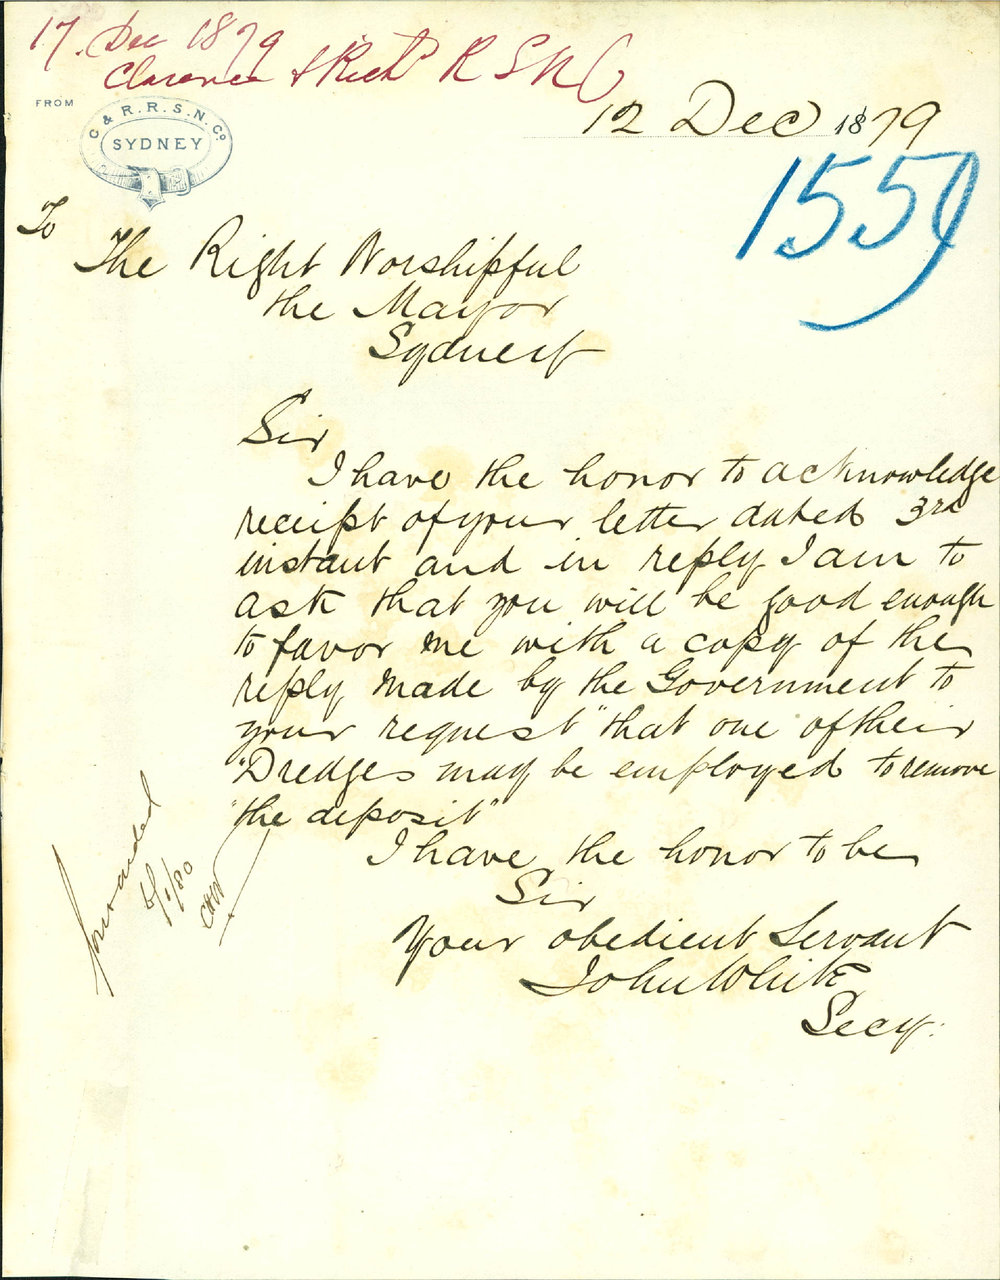 17. Dec 1879
Clarence & Richd R S N C
FROM
C & R. R. S. N. Co
SYDNEY
12 Dec 1879
1559
To
The Right Worshipful
the Mayor
Sydney
Sir
I have the honor to acknowledge
receipt of your letter dated 3rd
instant and in reply I am to
ask that you will be good enough
to favor me with a copy of the
reply made by the Government to
your request "that one of their
"Dredges may be employed to remove
"the deposit"
I have the honor to be
Sir
Your obedient Servant
John White
Secy:
forwarded
6/1/80
CHW